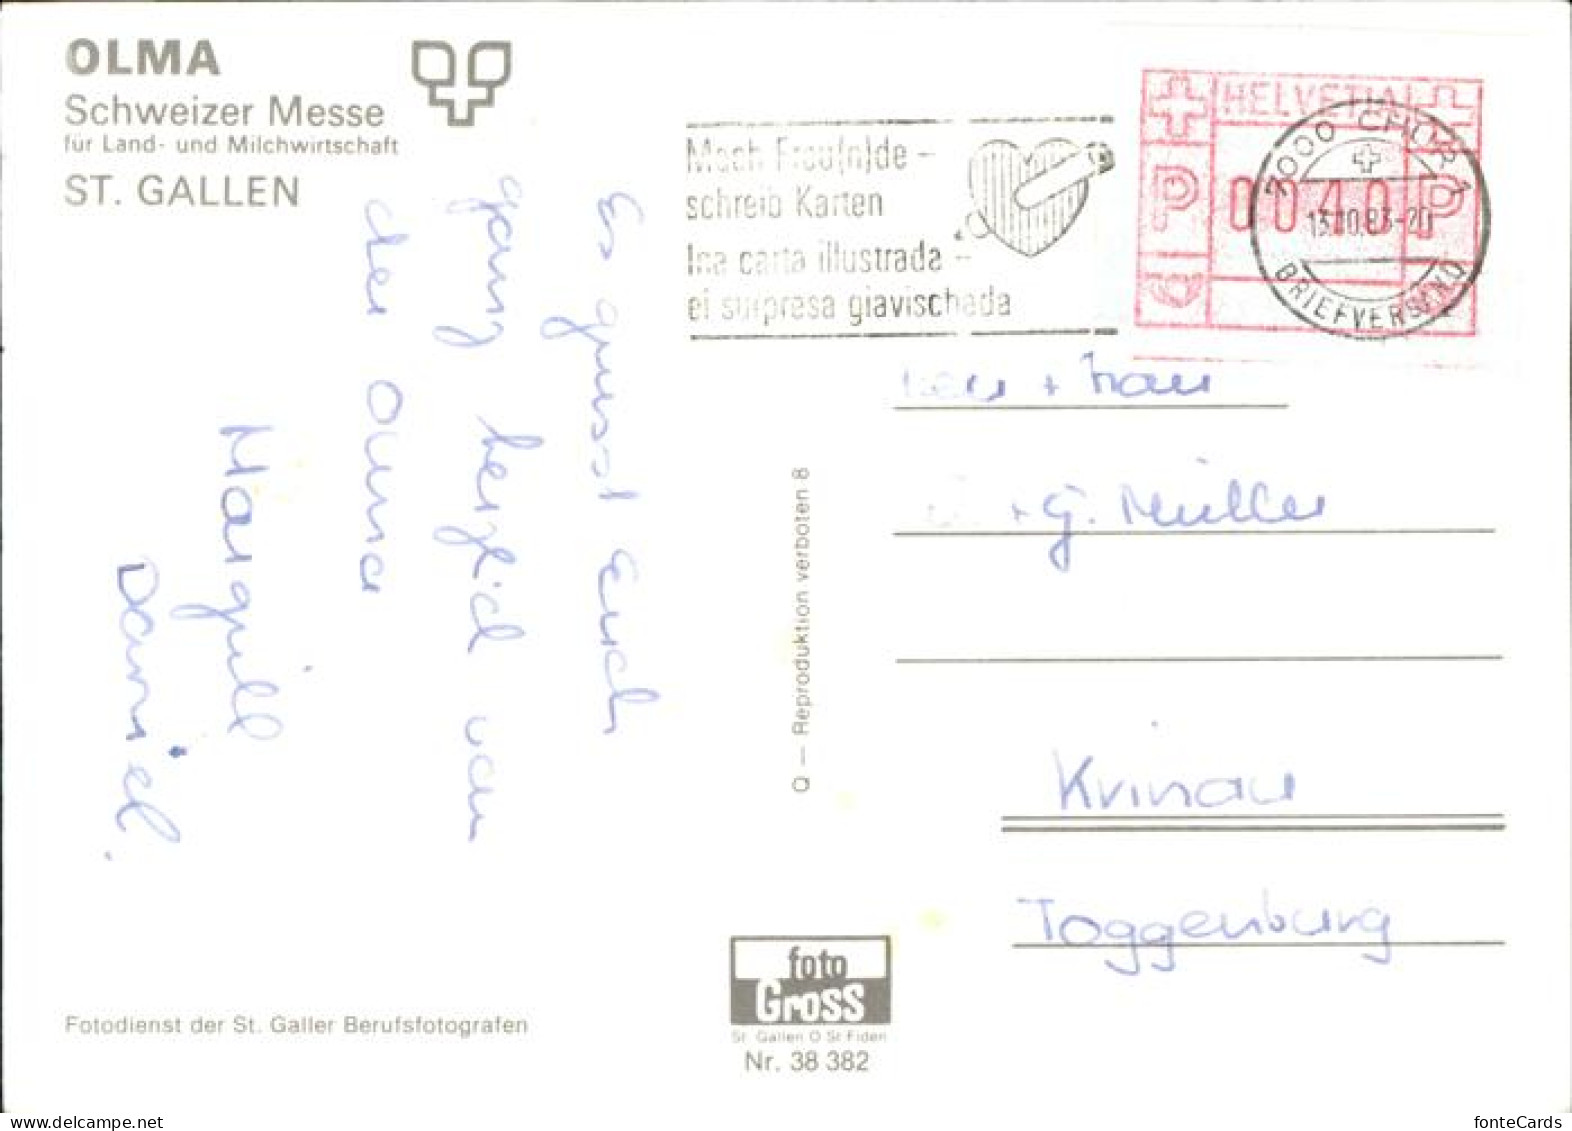 OLMA
Schweizer Messe
für Land- und Milchwirtschaft
ST. GALLEN
Es grüsst Euch
ganz herzlich von
der Olma
Margrill
Daniel.
Mach Freu(n)de –
schreib Karten
Ina carta illustrada –
ei surpresa giavischada
HELVETIA
P 0040 P
7000 CHUR 1
13.10.83-20
BRIEFVERSAND
+ Frau
+ G. Müller
Krinau
Toggenburg
Q — Reproduktion verboten 8
foto
Gross
St. Gallen O St Fiden
Nr. 38 382
Fotodienst der St. Galler Berufsfotografen
delcampe.net
fonteCards